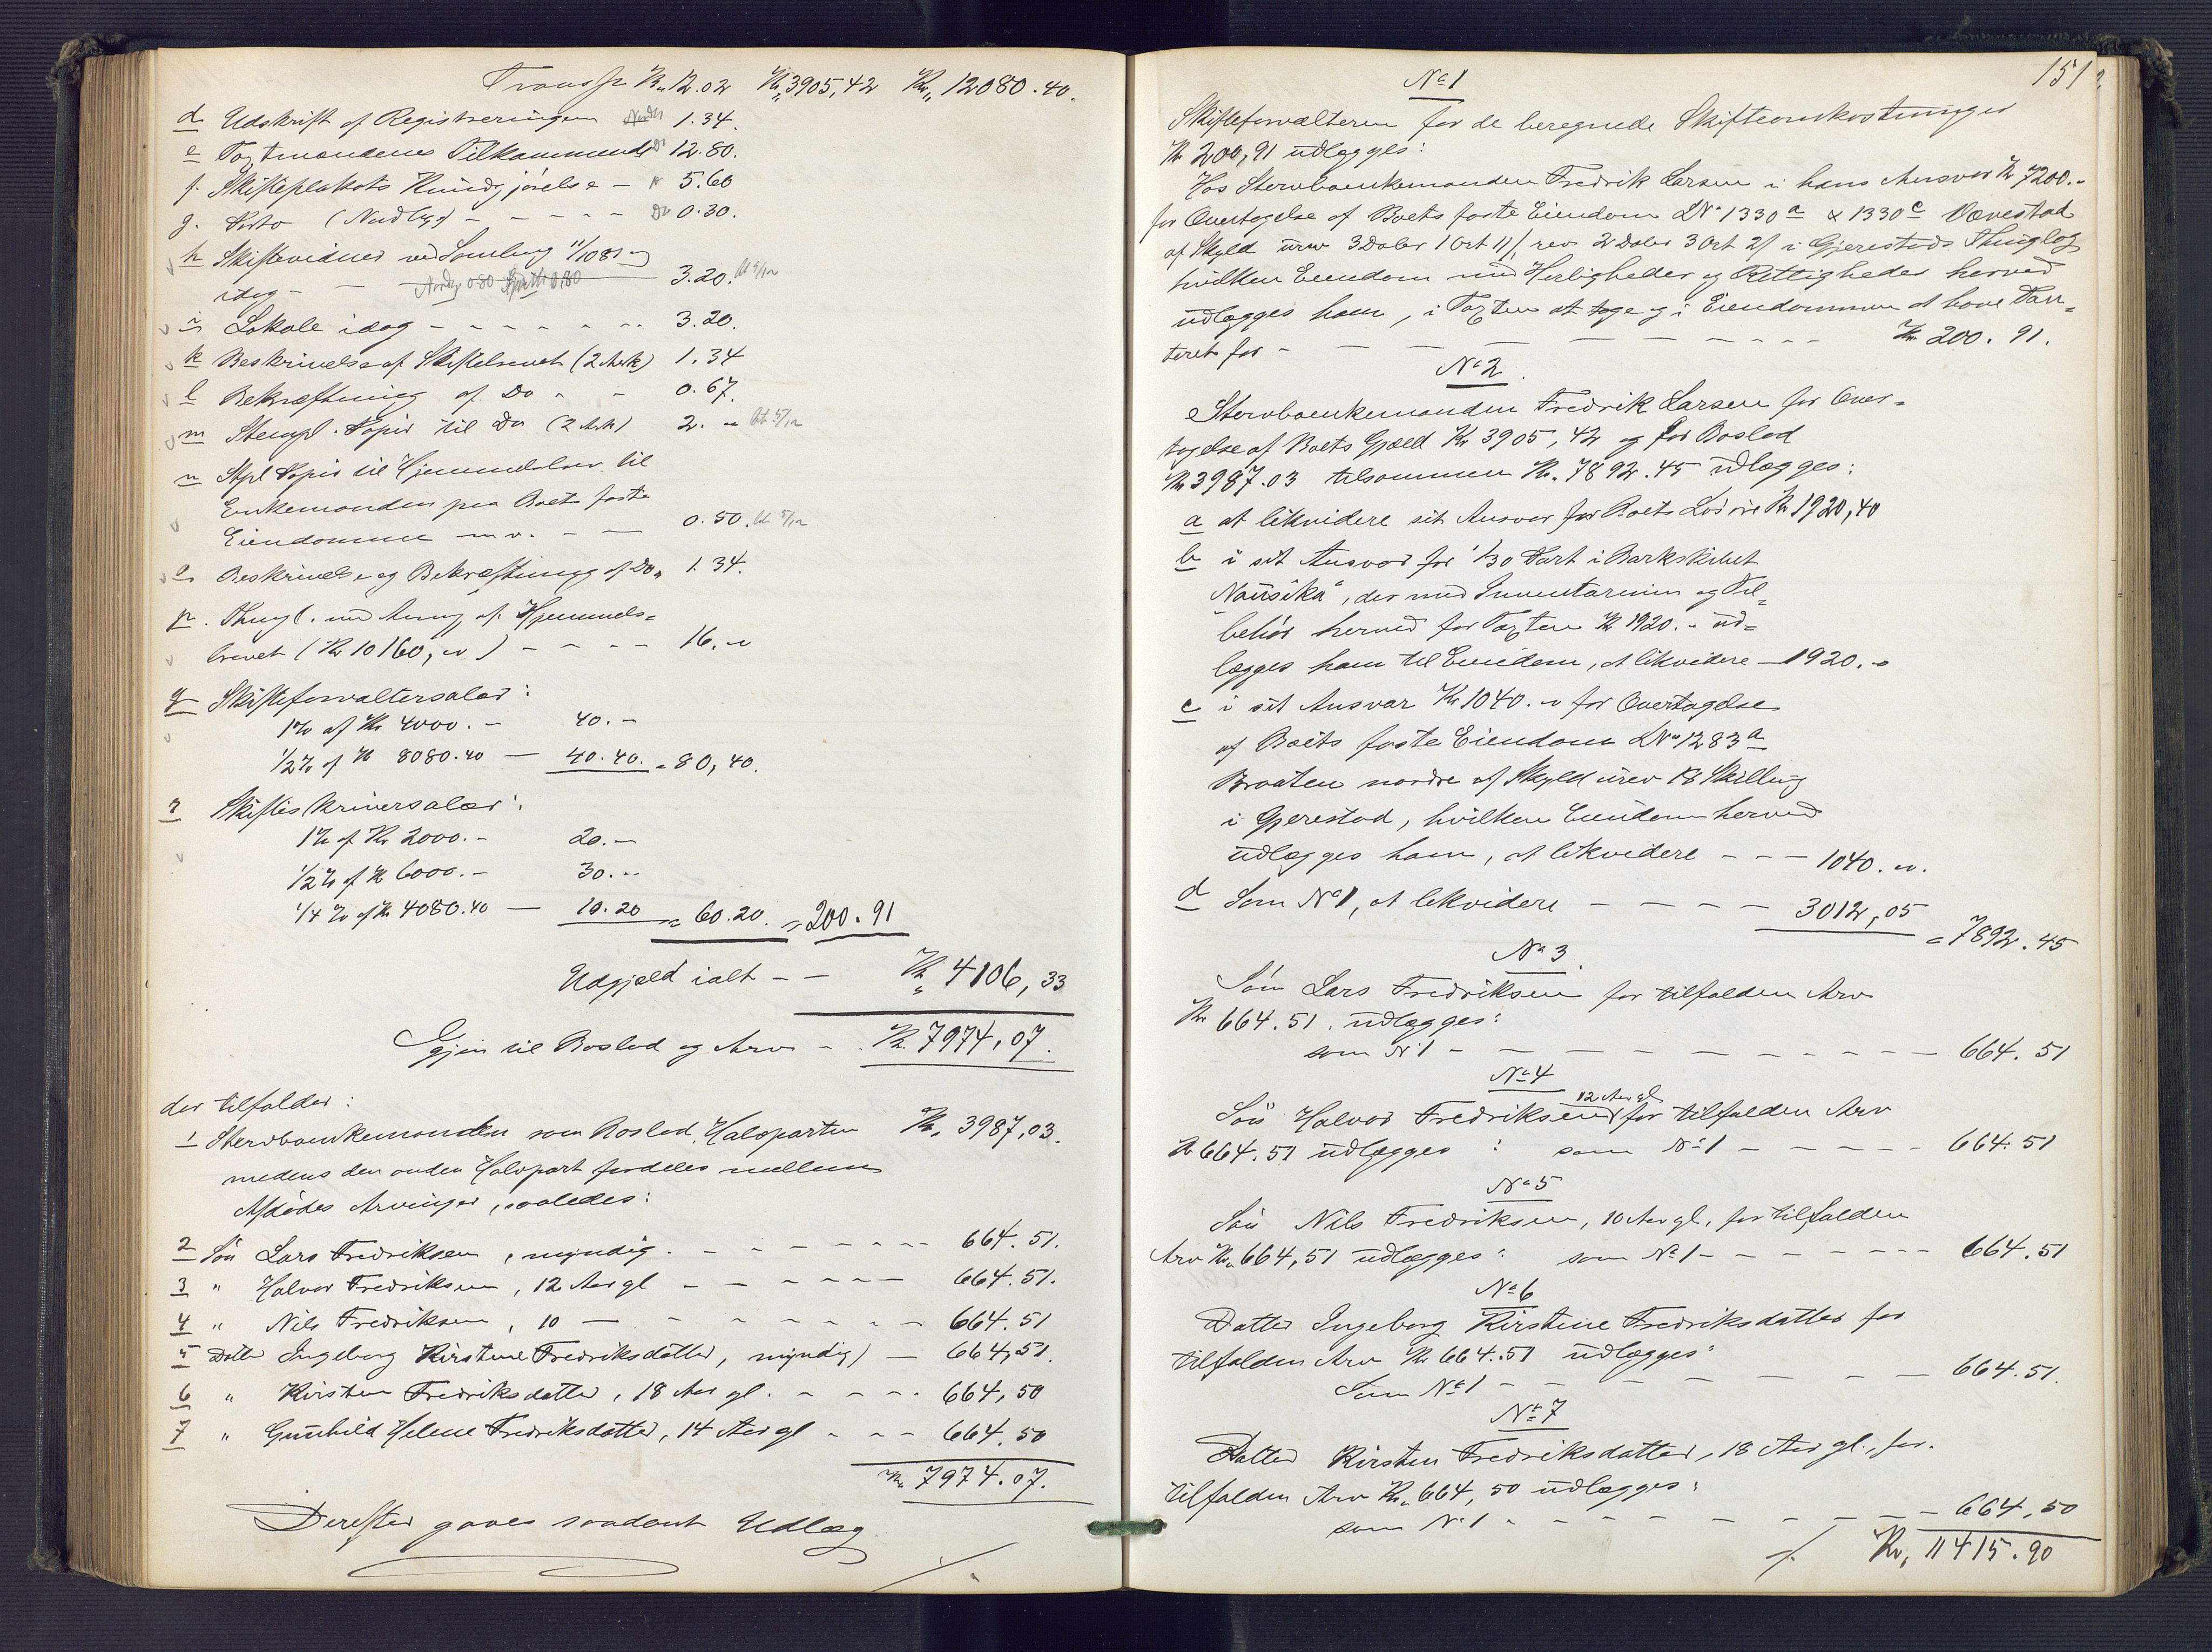 Transp Kr. 12.02 Kr. 3905,42 Kr. 12080.40.
d Udskrift af Registreringen 1.34.
e Taxtmændenes Tilkommende Do 12.80.
f. Skifteplakats Kundgjørelse — 5.60
g. Porto — — — — Do 0.30.
h Skiftevidner ved Samling 11/10 83 og
idag — — 3.20.
i Lokale idag — — — — — 3.20.
k Beskrivelse af Skiftebrevet (2 Ark) 1.34
l Bekræftning af Do — — 0.67.
m Stempl. Papir til Do (2 Ark) 2. "
n Stpl Papir til Hjemmelsbrev til
Enkemanden paa Boets faste
Eiendomme m.v. — — 0.50.
o Beskrivelse og Bekræftning af Do 1.34.
p. Thingl. med Anmg af Hjemmels=
brevet (Kr 10160, ") — — — — 16. "
q Skifteforvaltersalær:
1% af Kr 4000. — 40. —
1/2% af Kr 8080.40 — 40.40. = 80,40.
r Skifteskriversalær:
1% af Kr 2000. — 20. —
1/2% af Kr 6000. — 30. "
1/4% af Kr 4080.40 — 10.20 = 60.20. = 200.91
Udgjæld ialt — — Kr. 4106,33
Igjen til Boslod og Arv — Kr. 7974,07.
der tilfalder:
1 Stervboenkemanden som Boslod, Halvparten Kr. 3987,03.
medens den anden Halvpart fordeles mellem
Afdødes Arvinger, saaledes:
2 Søn Lars Fredriksen, myndig. — — — — — 664.51.
3 " Halvor Fredriksen, 12 Aar gl — — — — — 664.51.
4 " Nils Fredriksen, 10 — — — — — — 664.51
5 Datter Ingeborg Kirstine Fredriksdatter, myndig) — 664,51.
6 " Kirsten Fredriksdatter, 18 Aar gl. — — — 664,50
7 " Gunhild Helene Fredriksdatter, 14 Aar gl — — — 664.50
Kr. 7974.07.
Derefter gaves saadant Udlæg.
151
No 1
Skifteforvalteren for de beregnede Skifteomkostninger
Kr 200,91 udlægges:
Hos Stervboenkemanden Fredrik Larsen i hans Ansvar Kr 7200. "
for Overtagelse af Boets faste Eiendom LNo 1330a & 1330c Vævestad
af Skyld urev 3 Daler 1 Ort 11/, rev 2 Daler 3 Ort 2/ i Gjerestads Thinglag
hvilken Eiendom med Herligheder og Rettigheder herved
udlægges ham, i Taxten at tage og i Eiendommen at have Pan=
teret for — — — — — — — — Kr. 200.91.
No 2.
Stervboenkemanden Fredrik Larsen for Over=
tagelse af Boets Gjæld Kr 3905,42 og for Boslod
Kr 3987.03 tilsammen Kr. 7892.45 udlægges:
a at likvidere sit Ansvar for Boets Løsøre Kr 1920,40
b i sit Ansvar for 1/30 Part i Barkskibet
"Nausika", der med Inventarium og Til=
behør herved for Taxten Kr 1920. " ud=
lægges ham til Eiendom, at likvidere — 1920. "
c i sit Ansvar Kr 1040. " for Overtagelse
af Boets faste Eiendom LNo 1283a
Braaten nordre af Skyld urev 18 Skilling
i Gjerestad, hvilken Eiendom herved
udlægges ham, at likvidere — — — 1040. ".
d Som No 1, at likvidere — — — — 3012,05 = 7892.45
No 3.
Søn Lars Fredriksen for tilfalden Arv
Kr 664.51. udlægges:
som No 1 — — — — — — — — 664.51
No 4
12 Aar gl
Søn Halvor Fredriksen for tilfalden Arv
Kr 664.51 udlægges: som No 1 — — — — — 664.51
No 5
Søn Nils Fredriksen, 10 Aar gl, for tilfalden
Arv Kr. 664,51 udlægges: som No 1 — — — — — — 664.51
No 6
Datter Ingeborg Kirstine Fredriksdatter for
tilfalden Arv Kr 664.51 udlægges:
Som No 1 — — — — — — — 664.51.
No 7
Datter Kirsten Fredriksdatter, 18 Aar gl., for
tilfalden Arv Kr. 664,50 udlægges:
som No 1 — — — — — — — — 664,50
Kr. 11415.90